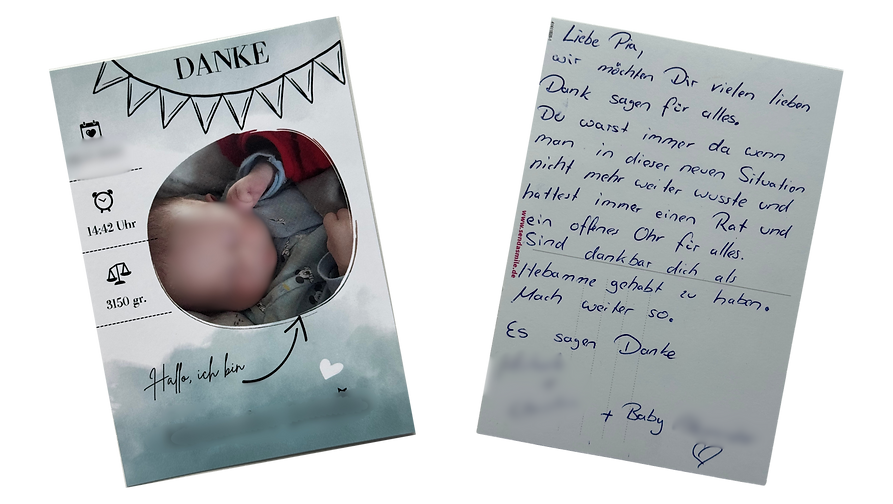 DANKE
14:42 Uhr
3150 gr.
Hallo, ich bin
Liebe Pia,
wir möchten Dir vielen lieben
Dank sagen für alles.
Du warst immer da wenn
man in dieser neuen Situation
nicht mehr weiter wusste und
hattest immer einen Rat und
ein offenes Ohr für alles.
Sind dankbar dich als
Hebamme gehabt zu haben.
Mach weiter so.
Es sagen Danke
+ Baby
www.sendasmile.de